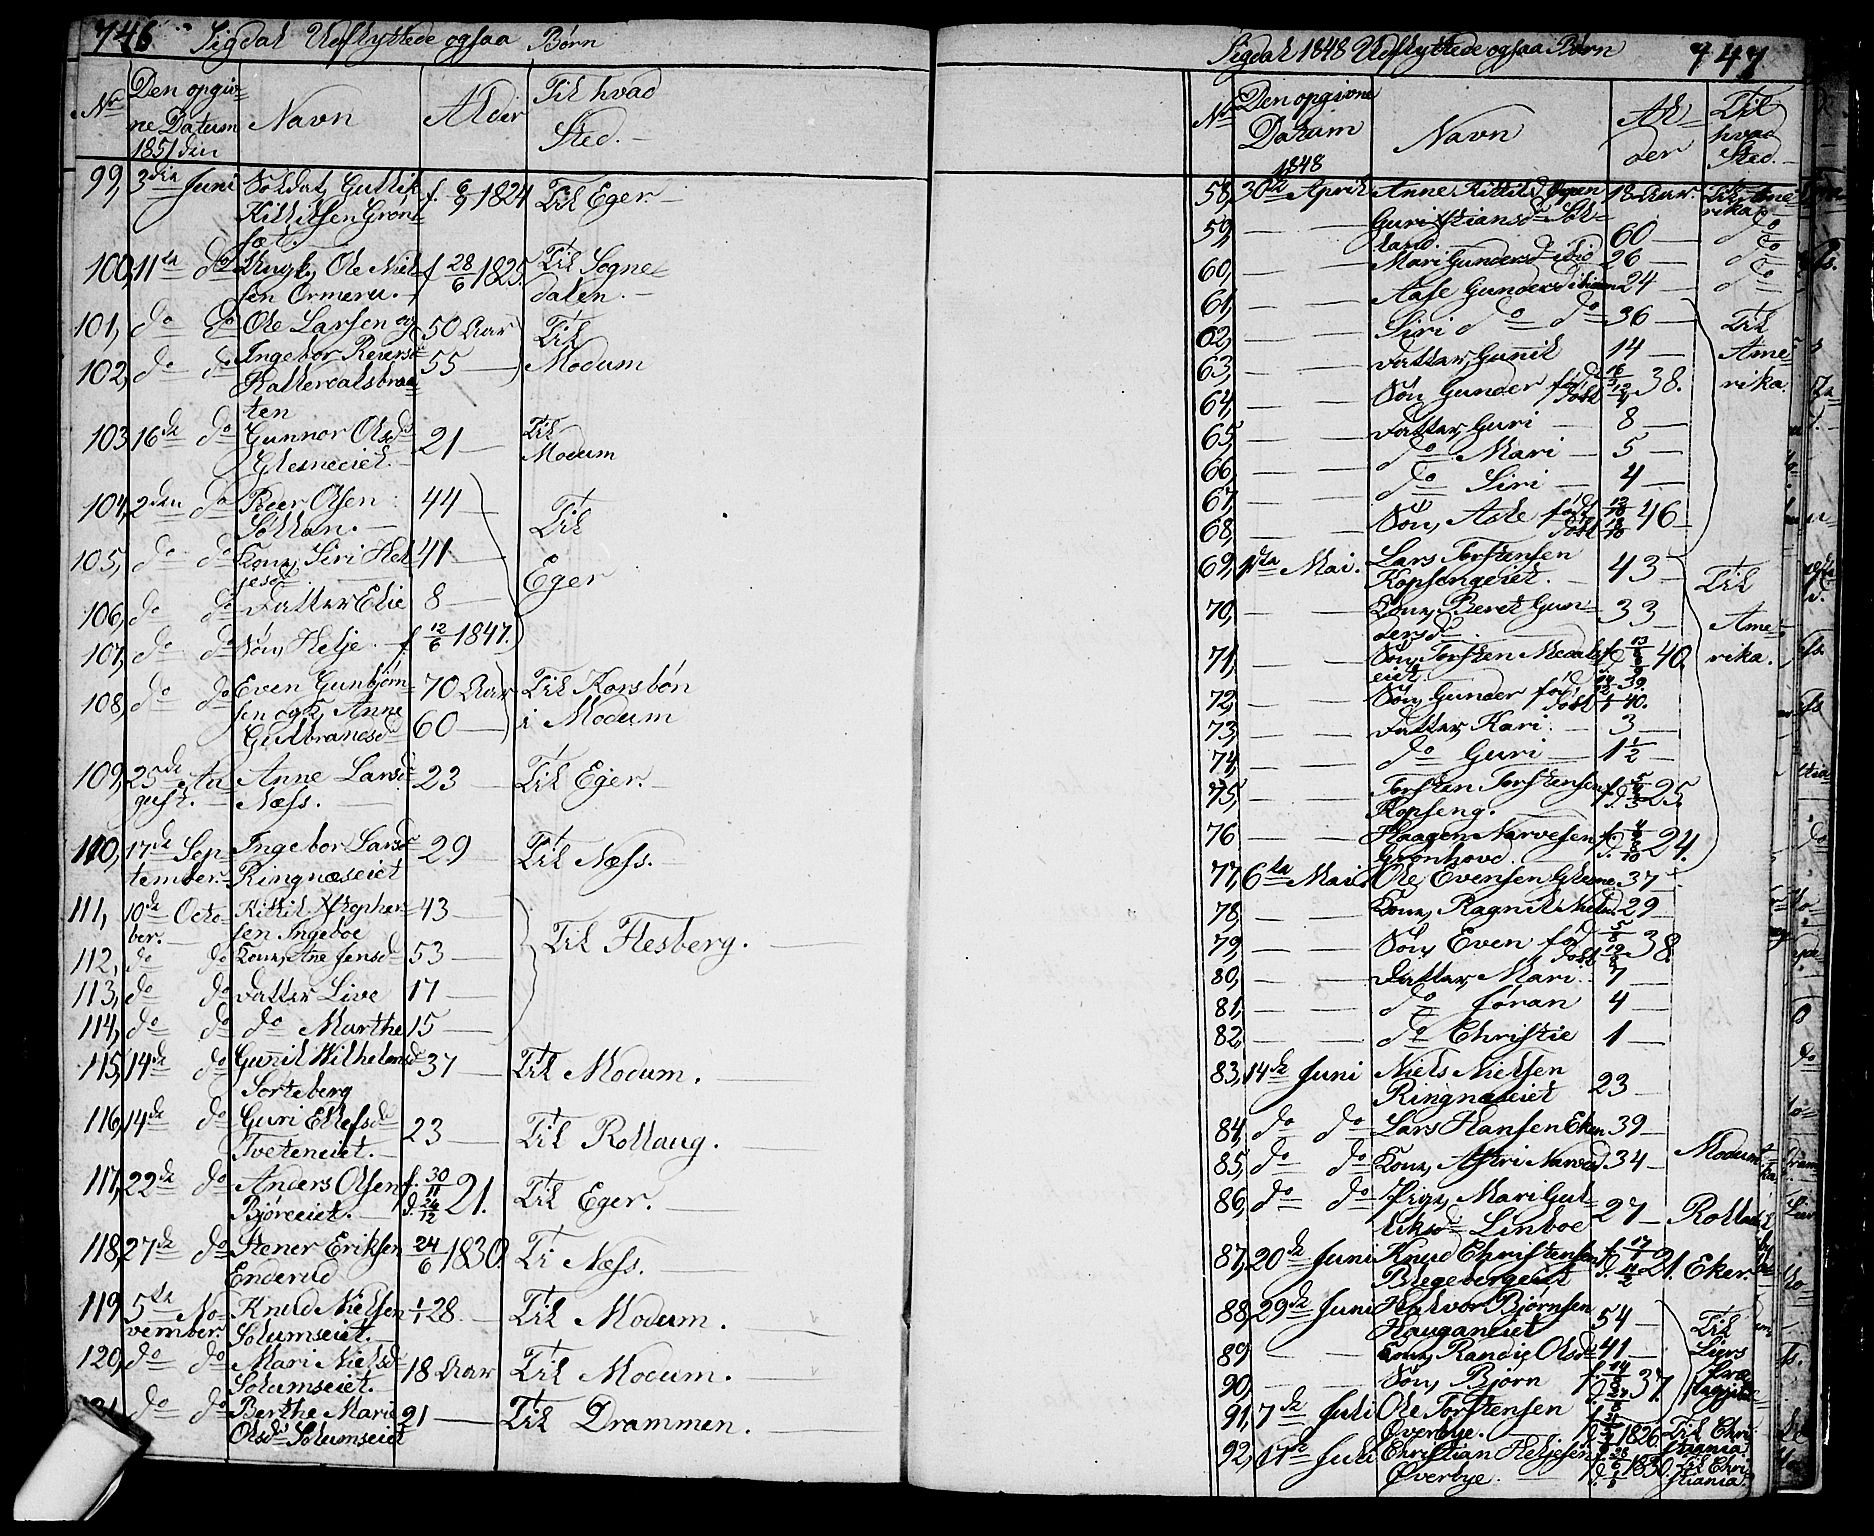 746 Sigdal Udflyttede ogsaa Børn
No Den opgiv= Navn Alder Til hvad
ne Datum Sted.
1851 den
99, 3die Juni Soldat, Guttik f. 6/9 1824 Til Eger.
Kittilsen Grøn=
sæt.
100, 11te do Ungk, Ole Niel= f 28/6 1825. Til Sogne
sen Ormeru. dalen.
101, do do Ole Larsen og 50 Aar Til
102, do do Ingebor Reiersd 55 Modum
Hattevalsbraa=
ten
103 16de do Gunnor Olsd 21 Til
Glesneeiet. Modum
104, 2den do Reer Olsen 44 Til
Sølland.
105, do do Kone, Siri Hel= 41 Eger
jesd
106, do do Datter Elie 8
107, do do Søn, Helje f 12/6 1847.
108, do do Even Gunbjørn= 70 Aar Til Korsbøn
sen og K, Anne 60 i Modum
Gulbrandsd
109, 25de Au= Anne Larsd 23 Til Eger.
gust. Næss.
110, 17de Sep= Ingebor Larsd 29 Til Næss.
tember. Ringnæseiet
111, 10de Octo= Kittil Xstopher= 43 Til Flesberg.
ber. sen Ingeboe
112, do do Kone, Ane Jensd 53
113, do do Datter Live 17
114, do do do Marthe 15
115, 14de do Gunil Wilhelmsd 37 Til Modum.
Sorteberg
116, 14de do Guri Ellefsd 23 Til Rollaug.
Tveteneiet.
117, 22de do Anders Olsen f. 30/11 21. Til Eger.
Bjøreeiet. d. 26/12
118, 27de do Stener Eriksen 24/6 1830. Til Næss.
Enderud
119, 5te No= Knud Nielsen 1/1 28 Til Modum.
vember. Solumseiet.
120, do do Mari Nielsd 18 Aar Til Modum.
Solumseiet.
121 do do Berthe Marie 21 Til Drammen.
Olsd Solumseiet
Sigdal 1848 Udflyttede ogsaa Børn 747
No Den opgivne Navn Al= Til
Datum der hvad
1848 Sted.
58, 30te April Anne Kittilsd 18 Aar. Til Ame
rika
59, Guri Xstiansd Søl= do
land. 60
60, Mari Gundersd ibid 26 do
61, Aase Gundersd ibidem 24 do
62, Siri do do 36 Til
63, Datter, Gunil 14 Ame
64, Søn Gunder fød 38. rika.
døbt
65, Datter, Guri 8
66, do Mari 5
67, do Siri 4
68, Søn, Asle fød 46
døbt
69, 1ste Mai. Lars Torstensen 43 Til
Kopsengeiet.
70, Kone, Beret Gun= 33 Ame=
dersd
71, Søn, Torsten 40 rika.
eiet.
72, Søn, Gunder fød 39
døbt 40.
73, Datter, Kari 3
74, do Guri 1 1/2
75, Torsten Torstensen 25,
Kopseng.
76 Haagen Narvesen 24.
Grønhovd.
77, 6te Mai Ole Evensen Glesne 37
78, Kone, Ragnil Nielsd 29
79, Søn, Even fød 38.
døbt
80, Datter, Mari 7
81, do Jøran 4
82, do Christie 1
83, 14de Juni Niels Nielsen
Ringnæseiet 23
84, do do Lars Hansen Eken 39
85, do do Kone, Astri Narvesd 34 Modum
86, do do Pige, Mari Gul= 27 Rollau
leksd Linboe
87, 20de Juni Knud Christensen f. 17/1 21. Eker.
Blegebergeiet d. 11/2
88, 29de Juni Halvor Bjørnsen 54 Til
Hauganeiet
89 Kone, Randie Olsd 41 Liers
90, Søn, Bjørn 37. Præ
stegjæld
91, 7de Juli Ole Torstensen 1826 Til Chri
Øverbye. stiania
92, 17de Juli Christian Heljesen 1830 Til Chri
Øverbye. stiania.